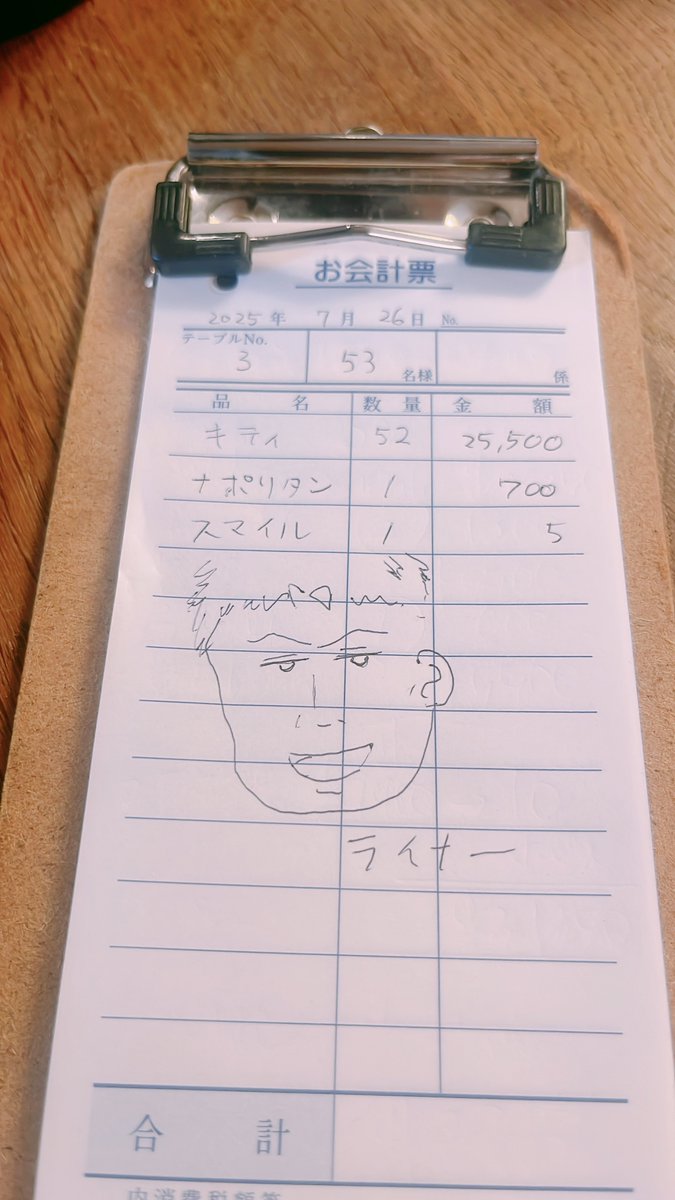 お会計票
2025年 7月 26日 No.
テーブルNo. 3 53 名様 係
品名 数量 金額
キティ 52 25,500
ナポリタン 1 700
スマイル 1 5
ライナー
合計
内消費税額等